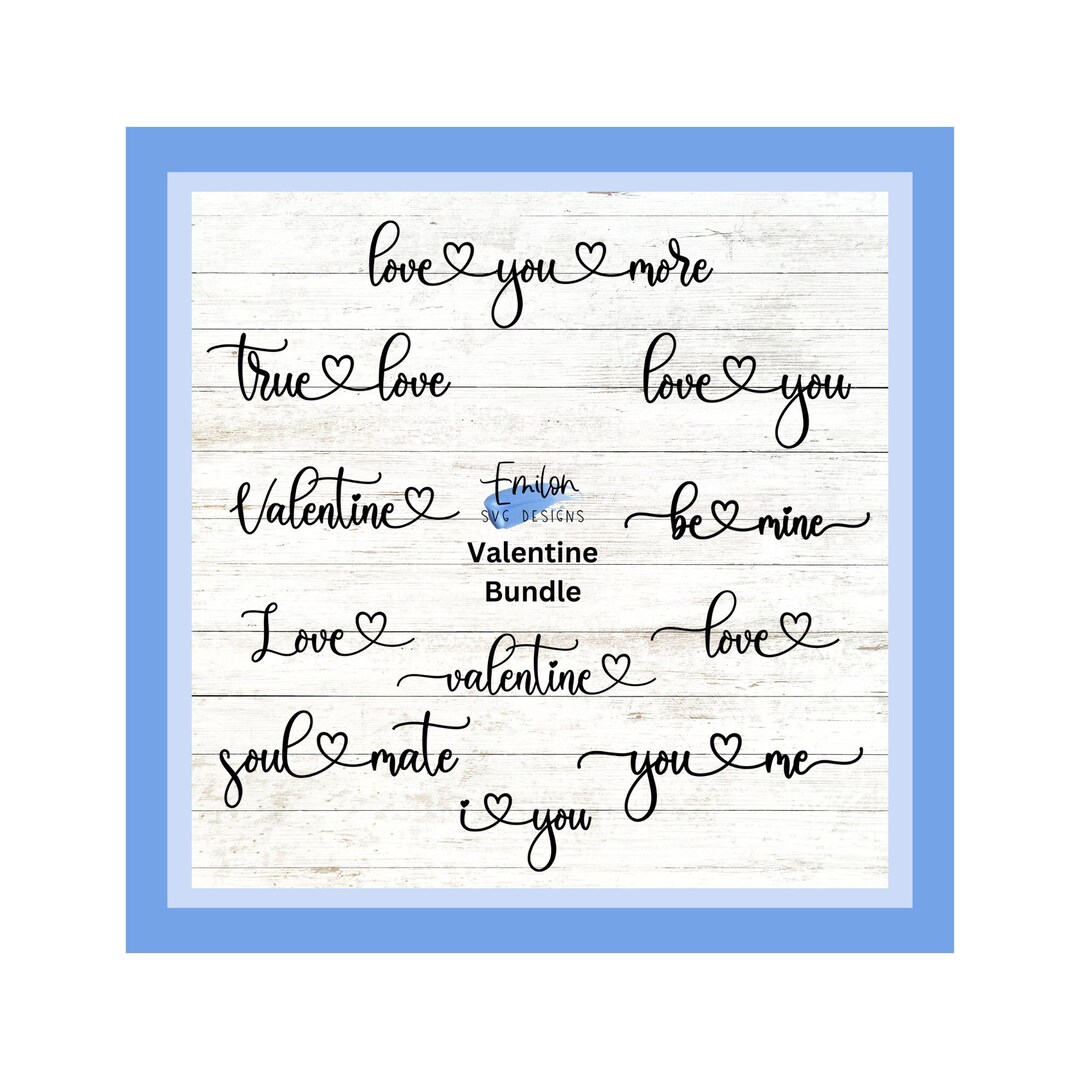 love you more
true love
love you
Valentine
Emilon
SVG DESIGNS
be mine
Valentine
Bundle
Love
love
valentine
soul mate
you me
i you